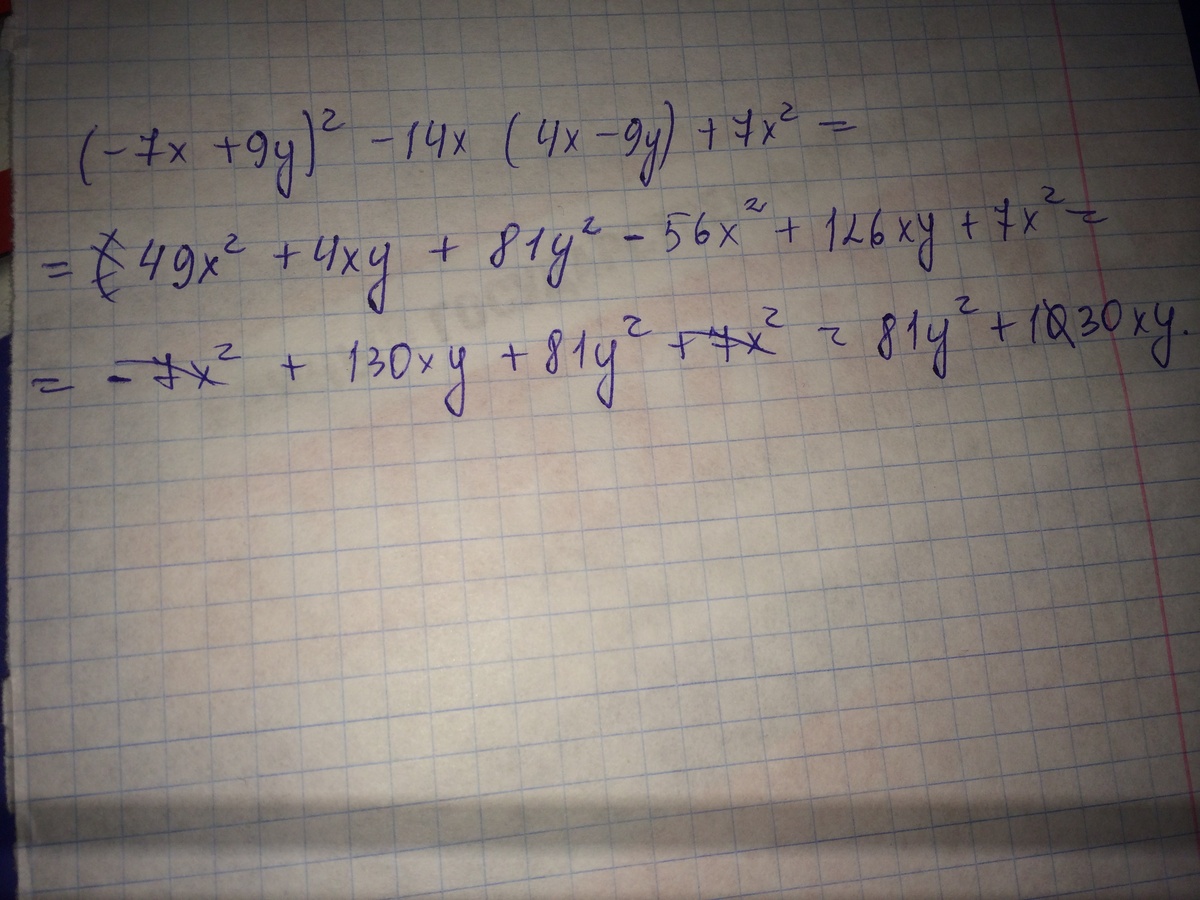 (-7x +9y)² -14x (4x -9y) +7x² =
= 49x² +4xy + 81y² - 56x² + 126xy + 7x² =
= -7x² + 130xy + 81y² +7x² = 81y² + 130xy.